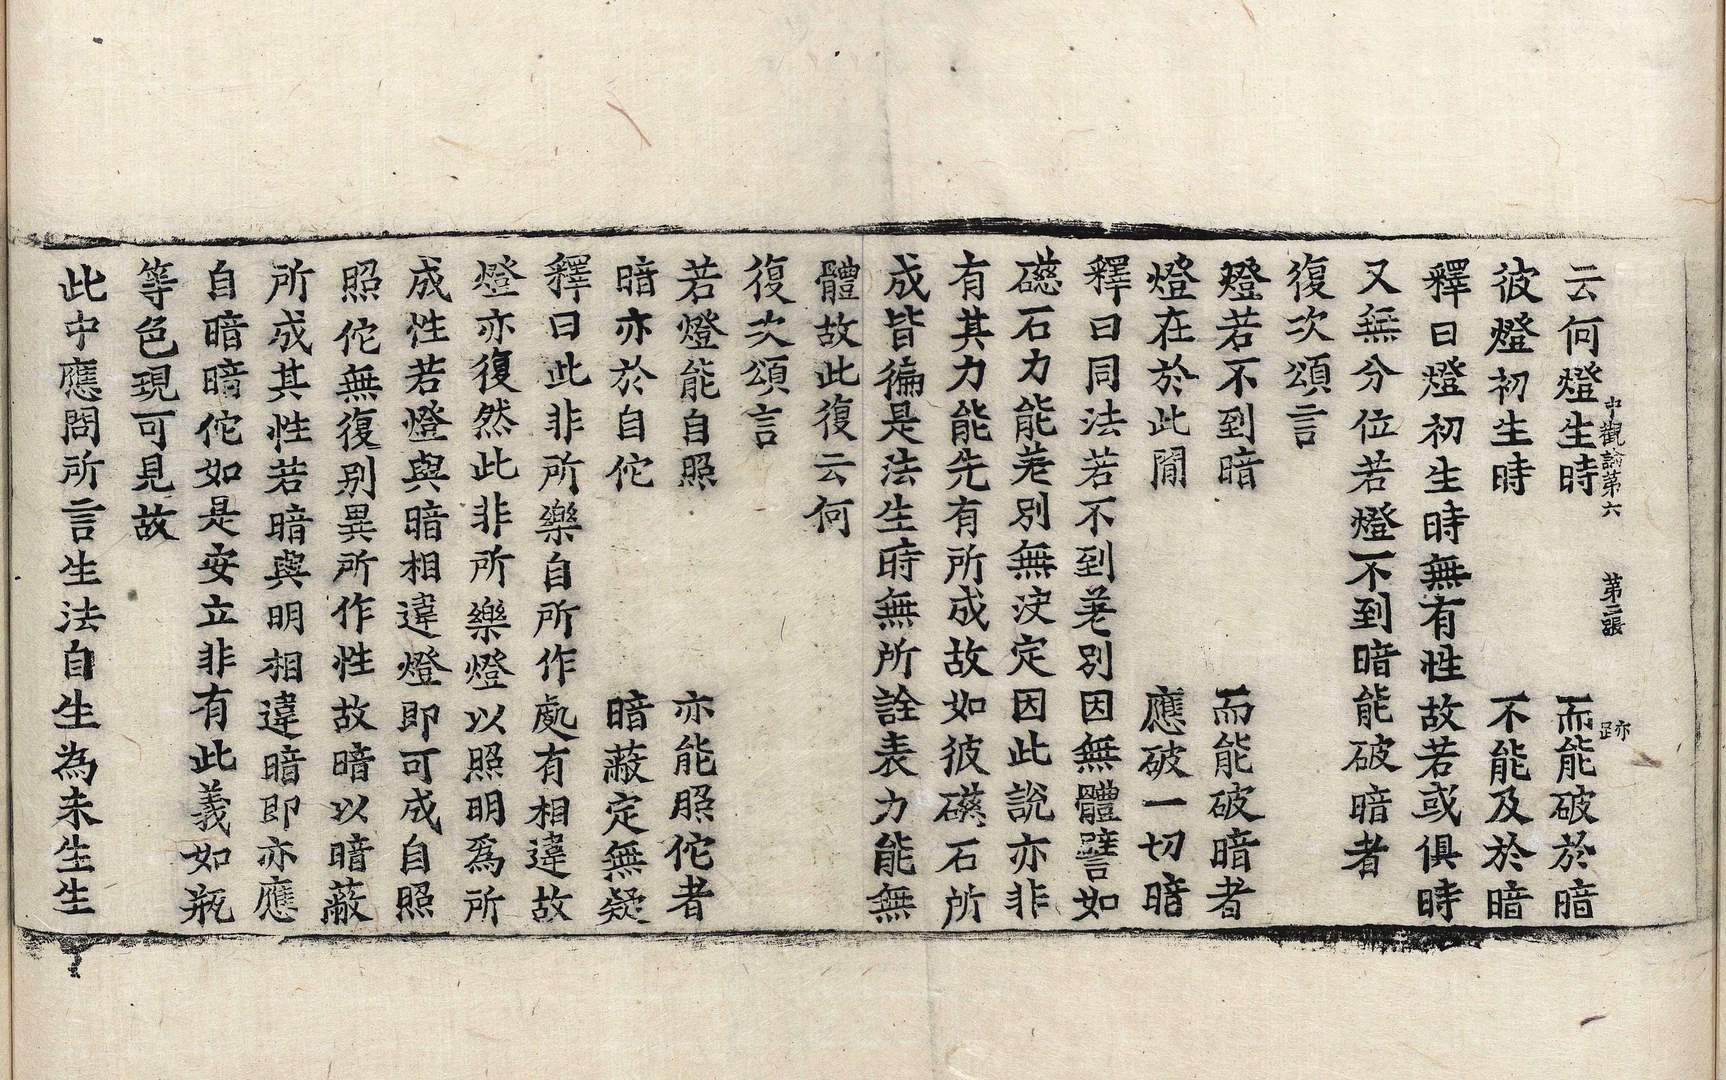 中觀論第六 第二張 跡
云何燈生時 而能破於暗
彼燈初生時 不能及於暗
釋曰燈初生時無有性故若或俱時
又無分位若燈不到暗能破暗者
復次頌言
燈若不到暗 而能破暗者
燈在於此間 應破一切暗
釋曰同法若不到差別因無體譬如
礠石力能差別無決定因此說亦非
有其力能先有所成故如彼礠石所
成皆徧是法生時無所詮表力能無
體故此復云何
復次頌言
若燈能自照 亦能照佗者
暗亦於自佗 暗蔽定無疑
釋曰此非所樂自所作處有相違故
燈亦復然此非所樂燈以照明爲所
成性若燈與暗相違燈即可成自照
照佗無復別異所作性故暗以暗蔽
所成其性若暗與明相違暗即亦應
自暗暗佗如是安立非有此義如瓶
等色現可見故
此中應問所言生法自生為未生生